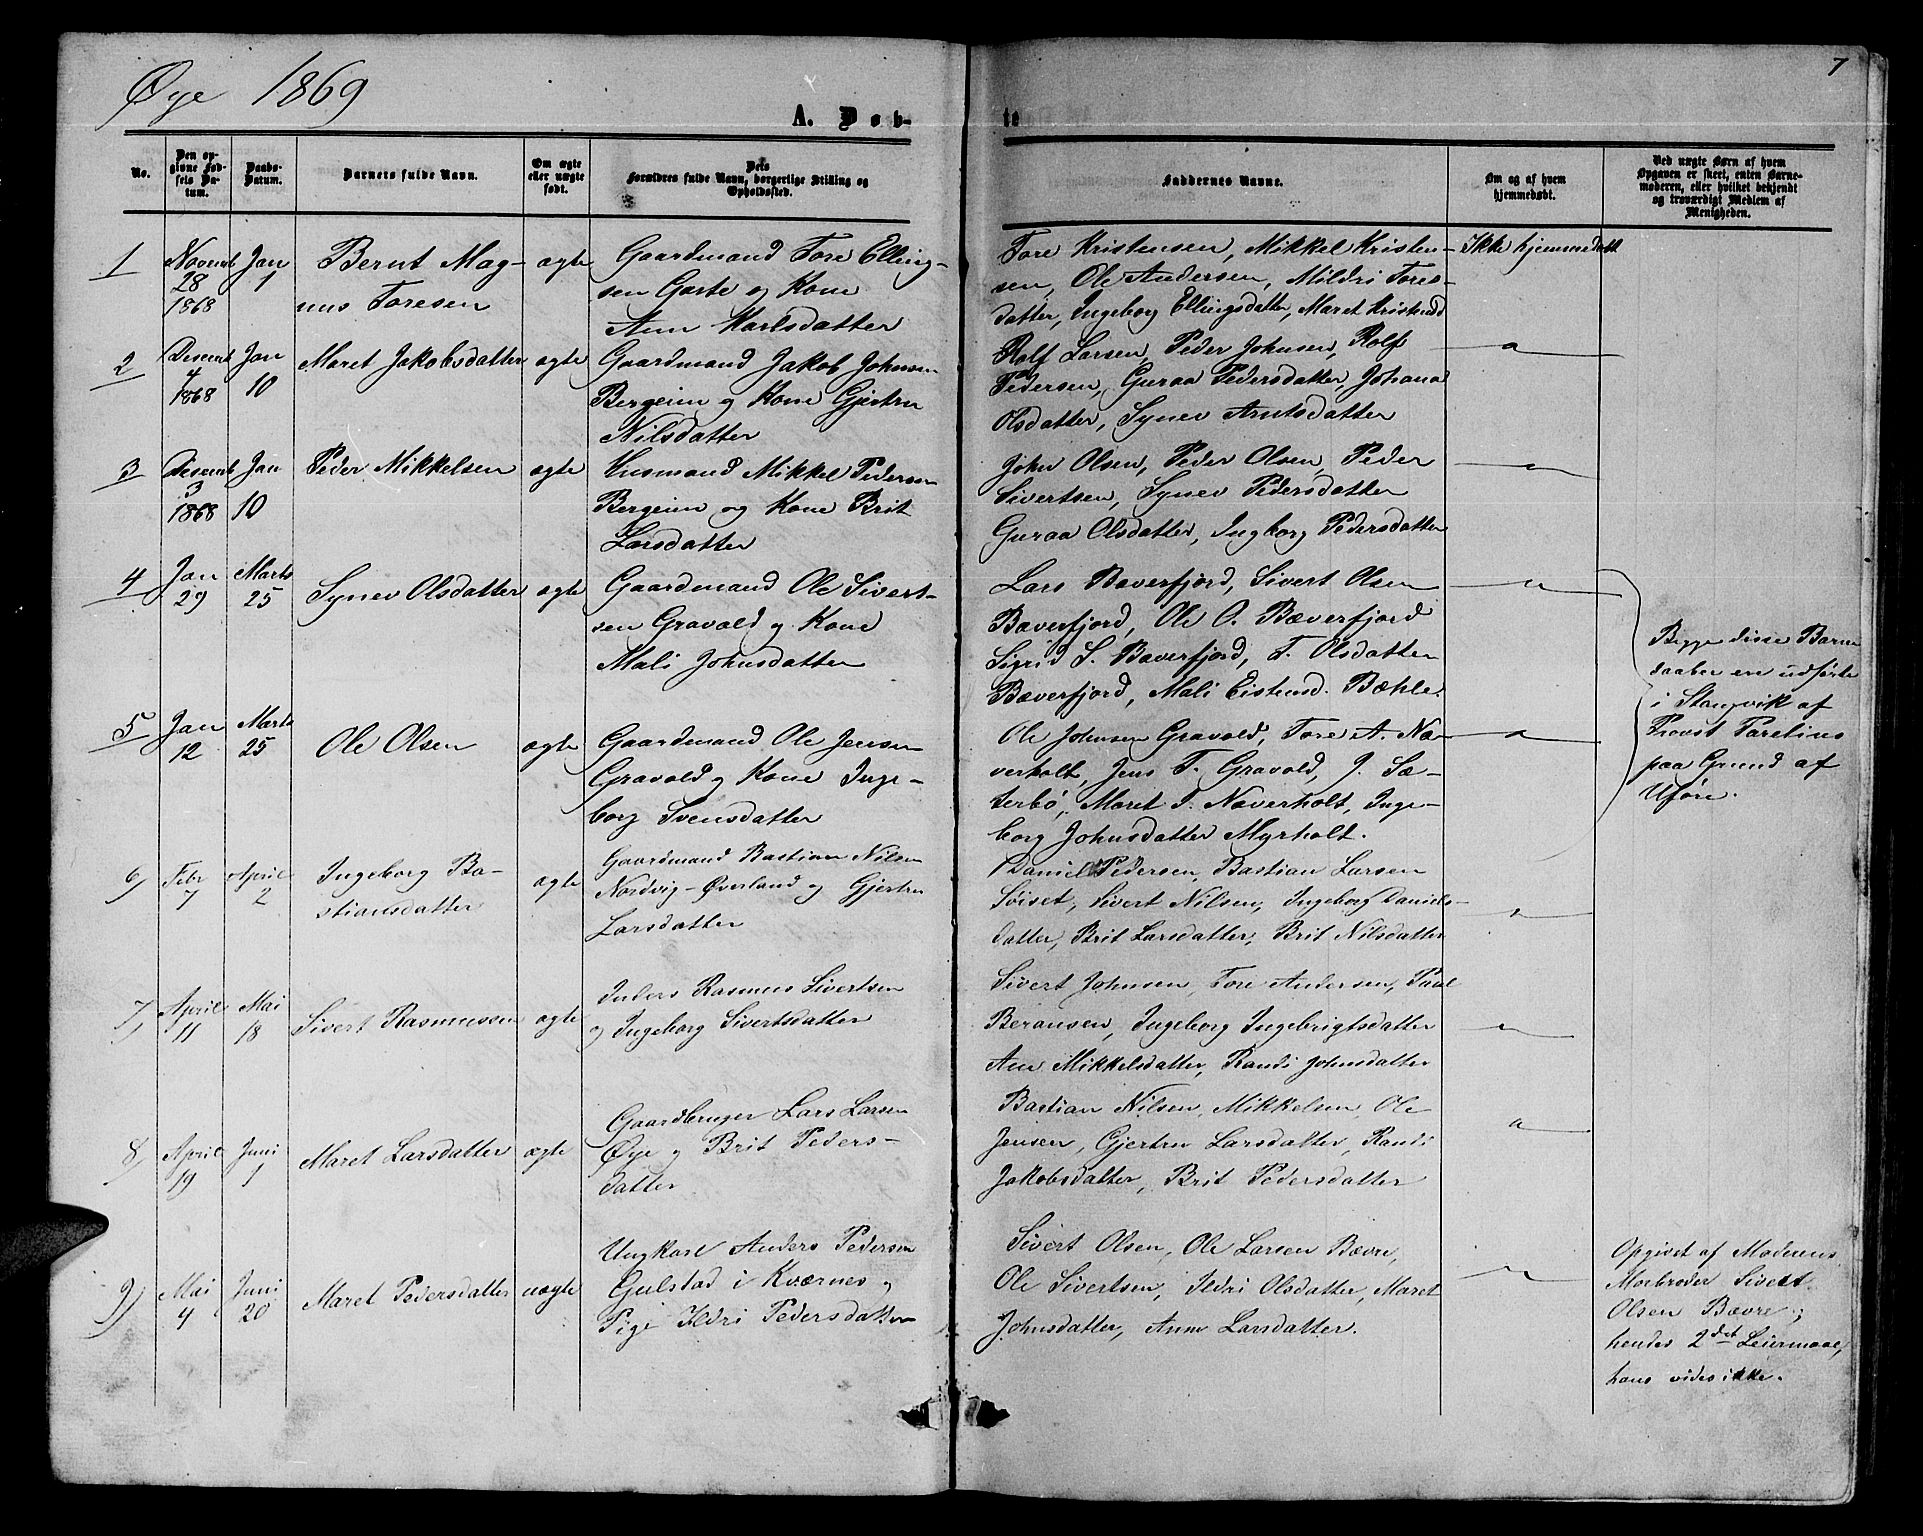 Øye 1869
7
A. Døb-
te
No.
Den op-
givne Fød-
sels Da-
tum.
Daabs-
Datum.
Barnets fulde Navn.
Om ægte
eller uægte
født.
Dets
Forældres fulde Navn, borgerlige Stilling og
Opholdssted.
Faddernes Navne.
Om og af hvem
hjemmedøbt.
Ved uægte Børn af hvem
Opgaven er skeet, enten Barne-
moderen, eller hvilket bekjendt
og troværdigt Medlem af
Menigheden.
1
Novemb
28
1868
Jan
1
Bernt Mag-
nus Toresen
ægte
Gaardmand Tore Elling-
sen Garte og Kone
Ann Karlsdatter
Tore Kristensen, Mikkel Kristen-
sen, Ole Andersen, Mildri Tores-
datter, Ingeborg Ellingsdatter, Maret Kristensd
Ikke hjemmedøbt
2
Decemb
4
1868
Jan
10
Maret Jakobsdatter
ægte
Gaardmand Jakob Johnsen
Bergeim og Kone Gjertru
Nilsdatter
Rolf Larsen, Peder Johnsen, Rolf
Pedersen, Guraa Pedersdatter, Johana
Olsdatter, Synev Arntsdatter
3
Decemb
3
1868
Jan
10
Peder Mikkelsen
ægte
Husmand Mikkel Pedersen
Bergeim og Kone Brit
Larsdatter
John Olsen, Peder Olsen, Peder
Sivertsen, Synev Pedersdatter
Guraa Olsdatter, Ingborg Pedersdatter
4
Jan
29
Marts
25
Synev Olsdatter
ægte
Gaardmand Ole Sivert-
sen Gravold og Kone
Mali Johnsdatter
Lars Bæverfjord, Sivert Olsen
Bæverfjord, Ole O. Bæverfjord
Sigrid S. Bæverfjord, T. Olsdatter
Bæverfjord, Mali Eistensd. Bæhle.
Begge disse Barne
daaber ere udførte
i Stangvik af
Provst
paa Grund af
Uføre.
5
Jan
12
Marts
25
Ole Olsen
ægte
Gaardmand Ole Jensen
Gravold og Kone Inge-
borg Svensdatter
Ole Johnsen Gravold, Tore A. Næ-
verholt, Jens T. Gravold, J. Sæ-
terbø, Maret T. Næverholt, Inge-
borg Johnsdatter Myrholt.
6)
Febr
7
April
2
Ingeborg Ba-
stiansdatter
ægte
Gaardmand Bastian Nilsen
Nordvig-Øverland og Gjertru
Larsdatter
Daniel Pedersen, Bastian Larsen
Søiset, Sivert Nilsen, Ingeborg Daniels-
datter, Brit Larsdatter, Brit Nilsdatter
7)
April
11
Mai
18
Sivert Rasmussen
ægte
Inders Rasmus Sivertsen
og Ingeborg Sivertsdatter
Sivert Johnsen, Tore Andersen, Paul
Beransen, Ingeborg Ingebrigtsdatter
Ane Mikkelsdatter, Randi Johnsdatter
8)
April
19
Juni
1
Maret Larsdatter
ægte
Gaardbruger Lars Larsen
Øye og Brit Peders-
datter
Bastian Nilsen, Mikkelsen, Ole
Jensen, Gjertru Larsdatter, Randi
Jakobsdatter, Brit Pedersdatter
9)
Mai
4
Juni
20
Maret Pedersdatter
uægte
Ungkarl Anders Pedersen
Gulstad i Kværnes og
Pige Ildri Pedersdatter
Sivert Olsen, Ole Larsen Bævre,
Ole Sivertsen, Ildri Olsdatter, Maret
Johnsdatter, Anne Larsdatter.
Opgivet af Moderens
Morbroder Sivert
Olsen Bævre,
hendes 2det Leiermaal,
hans vides ikke.